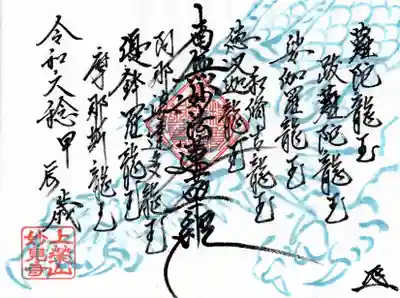 難陀龍王
跋難陀龍王
娑伽羅龍王
和脩吉龍王
徳叉迦龍王
南無妙法蓮華経
阿那婆達多龍王
優鉢羅龍王
摩那斯龍王
令和六稔甲辰歳
上榮山